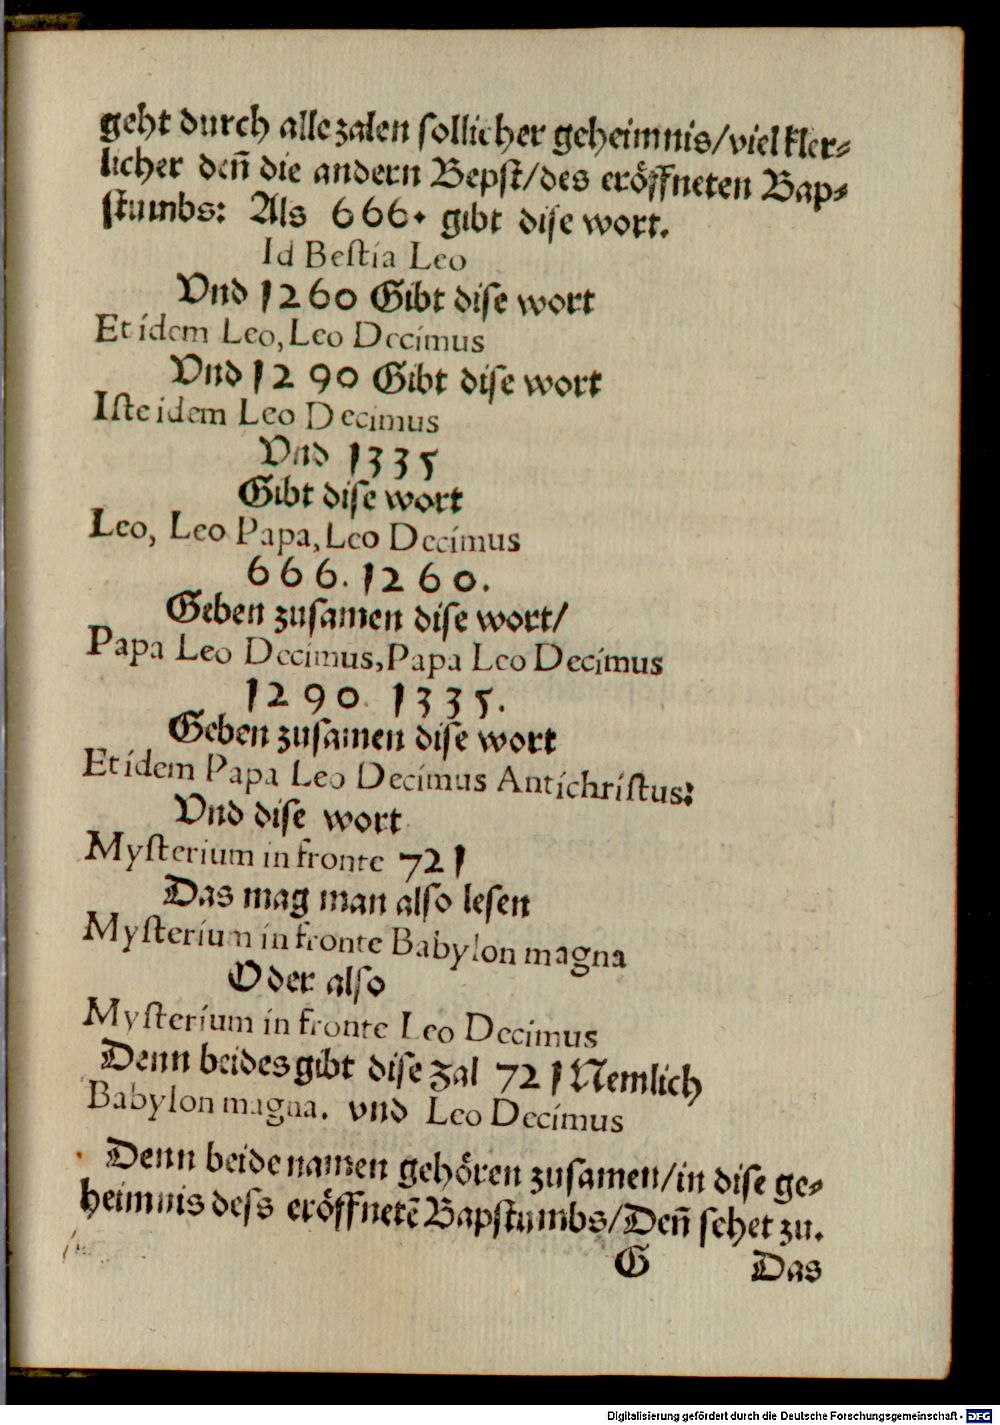 geht durch alle zalen sollicher geheimnis/viel kler⸗
licher deñ die andern Bepst/des eröffneten Bap⸗
stumbs: Als 666. gibt dise wort.
Id Bestia Leo
Vnd 1260 Gibt dise wort
Et idem Leo, Leo Decimus
Vnd 1290 Gibt dise wort
Iste idem Leo Decimus
Vnd 1335
Gibt dise wort
Leo, Leo Papa, Leo Decimus
666. 1260.
Geben zusamen dise wort/
Papa Leo Decimus, Papa Leo Decimus
1290. 1335.
Geben zusamen dise wort
Et idem Papa Leo Decimus Antichristus:
Vnd dise wort
Mysterium in fronte 721
Das mag man also lesen
Mysterium in fronte Babylon magna
Oder also
Mysterium in fronte Leo Decimus
Denn beides gibt dise zal 721 Nemlich
Babylon magna. vnd Leo Decimus
Denn beide namen gehören zusamen/in dise ge⸗
heimnis dess eröffnetē Bapstumbs/Deñ sehet zu.
G Das
Digitalisierung gefördert durch die Deutsche Forschungsgemeinschaft - DFG